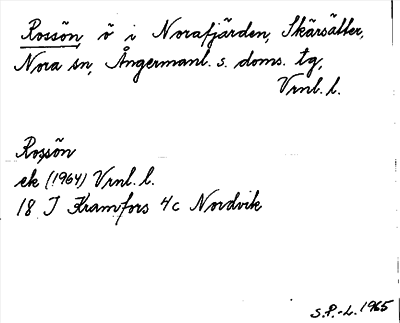 Rossön, ö i Norafjärden, Skärsätter,
Nora sn, Ångermanl. s. doms. tg,
Vrnl. l.
Rossön
ek (1964) Vrnl. l.
18 I Kramfors 4c Nordvik
S.P.-L. 1965